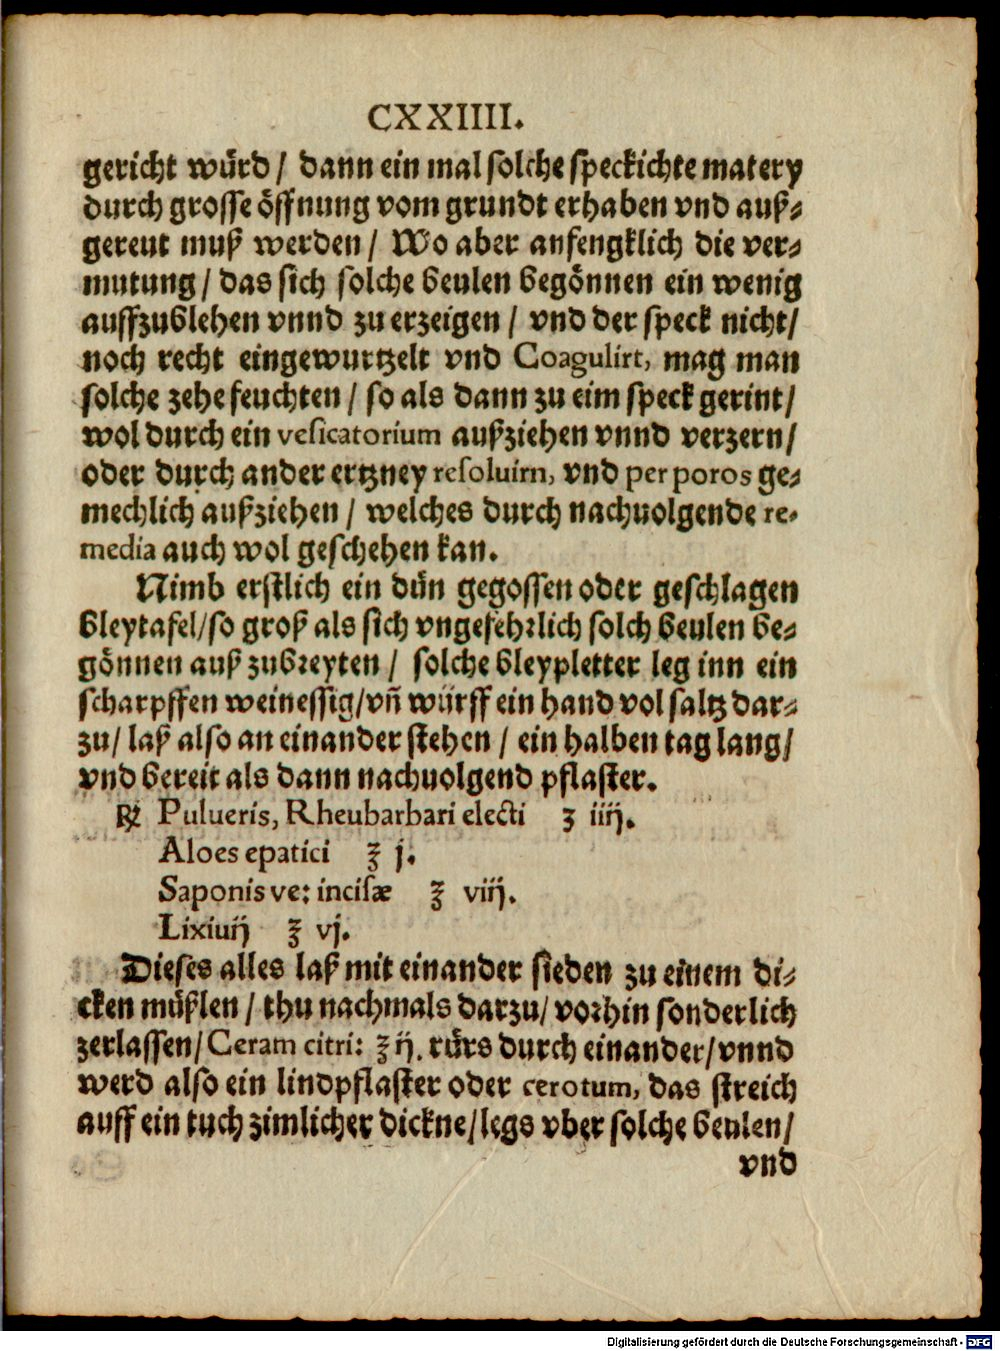 CXXIIII.
gericht wuͤrd / dann ein mal solche speckichte matery
durch grosse oͤffnung vom grundt erhaben vnd auß⸗
gereut muß werden / Wo aber anfengklich die ver⸗
mutung / das sich solche beulen begoͤnnen ein wenig
auffzublehen vnnd zu erzeigen / vnd der speck nicht /
noch recht eingewurtzelt vnd Coagulirt, mag man
solche zehe feuchten / so als dann zu eim speck gerint /
wol durch ein vesicatorium außziehen vnnd verzern /
oder durch ander ertzney resoluirn, vnd per poros ge⸗
mechlich außziehen / welches durch nachuolgende re⸗
media auch wol geschehen kan.
Nimb erstlich ein duͤn gegossen oder geschlagen
bleytafel / so groß als sich vngefehrlich solch beulen be⸗
goͤnnen auß zubreyten / solche bleypletter leg inn ein
scharpffen weinessig / vñ wuͤrff ein hand vol saltz dar⸗
zu / laß also an einander stehen / ein halben tag lang /
vnd bereit als dann nachuolgend pflaster.
℞ Pulueris, Rheubarbari electi ʒ iiij.
Aloes epatici ℥ j.
Saponis ve: incisæ ℥ viij.
Lixiuij ℥ vj.
Dieses alles laß mit einander sieden zu einem di⸗
cken muͤßlen / thu nachmals darzu / vorhin sonderlich
zerlassen / Ceram citri: ℥ ij. ruͤrs durch einander / vnnd
werd also ein lindpflaster oder cerotum, das streich
auff ein tuch zimlicher dickne / legs vber solche beulen /
vnd
Digitalisierung gefördert durch die Deutsche Forschungsgemeinschaft - DFG